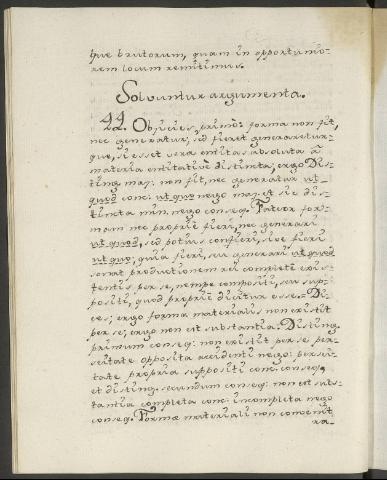 que brutorum, quam in opportunio-
rem locum remitimus.
Solvuntur argumenta.
22. Objicies, primò: forma non fit,
nec generatur, sed fieret generaretur-
que, si esset vera entitas absoluta à
materia entitativè distincta; ergo Dis-
ting. maj: non fit, nec generatur ut
quod conc: ut quo nego maj. et sic dis-
tincta min. nego conseq. Fateor for-
mam nec propriè fieri, nec generari
ut quod, sed potius confieri, sive fieri
ut quo; quia fieri, seu generari ut quod
sonat productionem rei completè exis-
tentis per se, nempe compositi, seu sup-
positi, quod propriè dicitur esse. Di-
ces; ergo forma materialis non existit
per se; ergo non est substantia. Disting.
primum conseq: non existit per se per-
seitate opposita accidenti nego: persei-
tate propria suppositi conc. conseq.
et disting. secundum conseq: non est subs-
tantia completa conc: incompleta nego
conseq. Formæ materiali non convenit
ra-